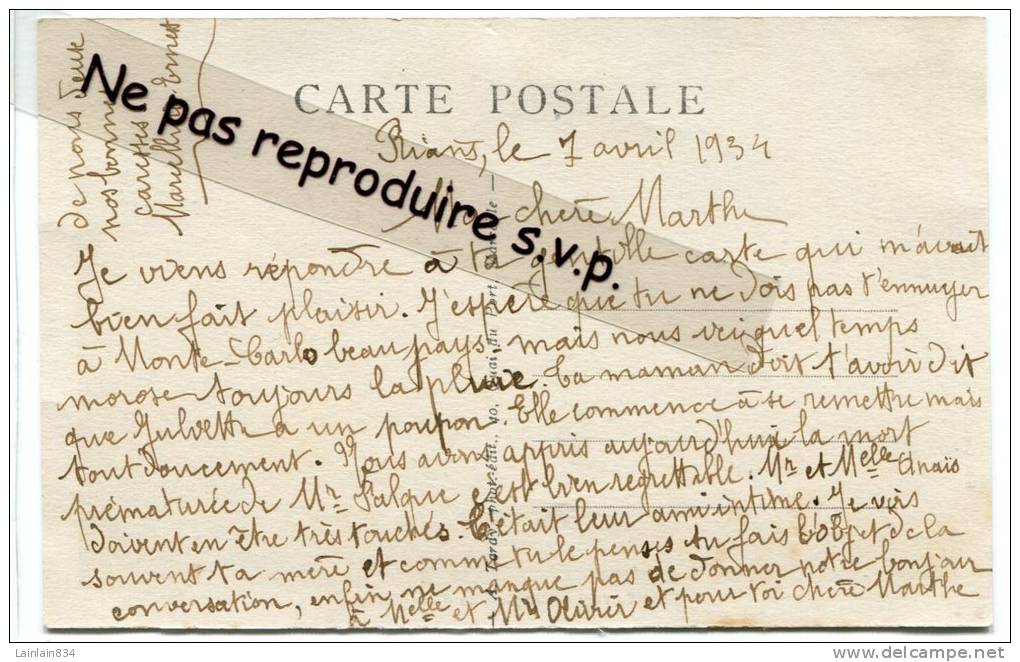 CARTE POSTALE
Rians, le 7 avril 1934
Ma chère Marthe
Je viens répondre à ta gentille carte qui m'avait
bien fait plaisir. J'espère que tu ne dois pas t'ennuyer
à Monte-Carlo beau pays, mais nous vei quel temps
morose toujours la pluie. Ta maman doit t'avoir dit
que Gulvette a un poupon. Elle commence à se remettre mais
tout doucement. Nous avons appris aujourd'hui la mort
prématurée de Mr Falque c'est bien regrettable. Mr et Melle Anaïs
doivent en être très touchés. C'était leur ami intime. Je vois
souvent ta mère et comme tu le penses tu fais l'objet de la
conversation, enfin ne manque pas de donner notre bonjour
à Melle et Mr Olivier et pour toi chère Marthe
de nous deux
nos bonnes
caresses
Marcelle Ernest
Ne pas reproduire s.v.p.
Lainlain834
www.delcampe.net